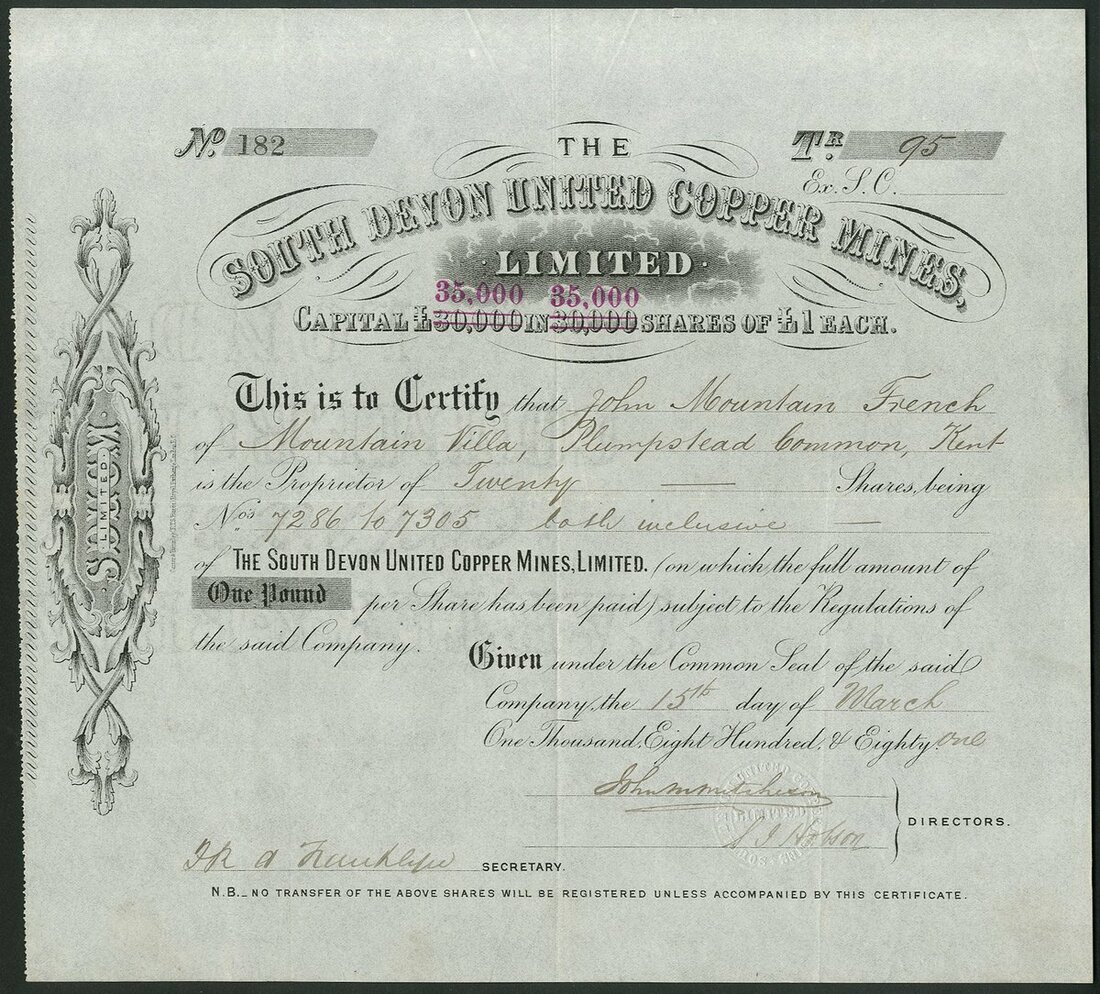 No. 182
TR 95
Ex. S. C.
THE
SOUTH DEVON UNITED COPPER MINES,
LIMITED
35,000 35,000
CAPITAL £30,000 IN 30,000 SHARES OF £1 EACH.
This is to Certify that John Mountain French
of Mountain Villa, Plumpstead Common, Kent
is the Proprietor of Twenty — Shares, being
Nos 7286 to 7305 both inclusive —
of THE SOUTH DEVON UNITED COPPER MINES, LIMITED. (on which the full amount of
One Pound per Share has been paid) subject to the Regulations of
the said Company.
Given under the Common Seal of the said
Company, the 15th day of March
One Thousand, Eight Hundred, & Eighty one
John M Mitcheson
S J Hobson
DIRECTORS.
SECRETARY.
N.B._ NO TRANSFER OF THE ABOVE SHARES WILL BE REGISTERED UNLESS ACCOMPANIED BY THIS CERTIFICATE.
LIMITED